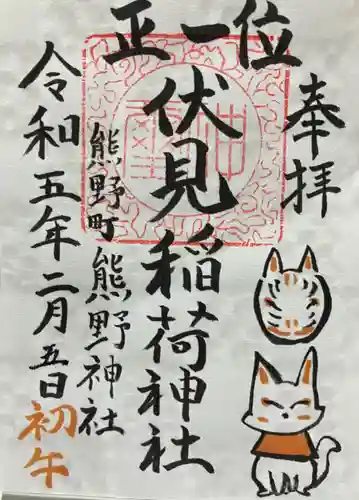 正一位
奉拝
伏見稲荷神社
熊野町熊野神社
令和五年二月五日
初午